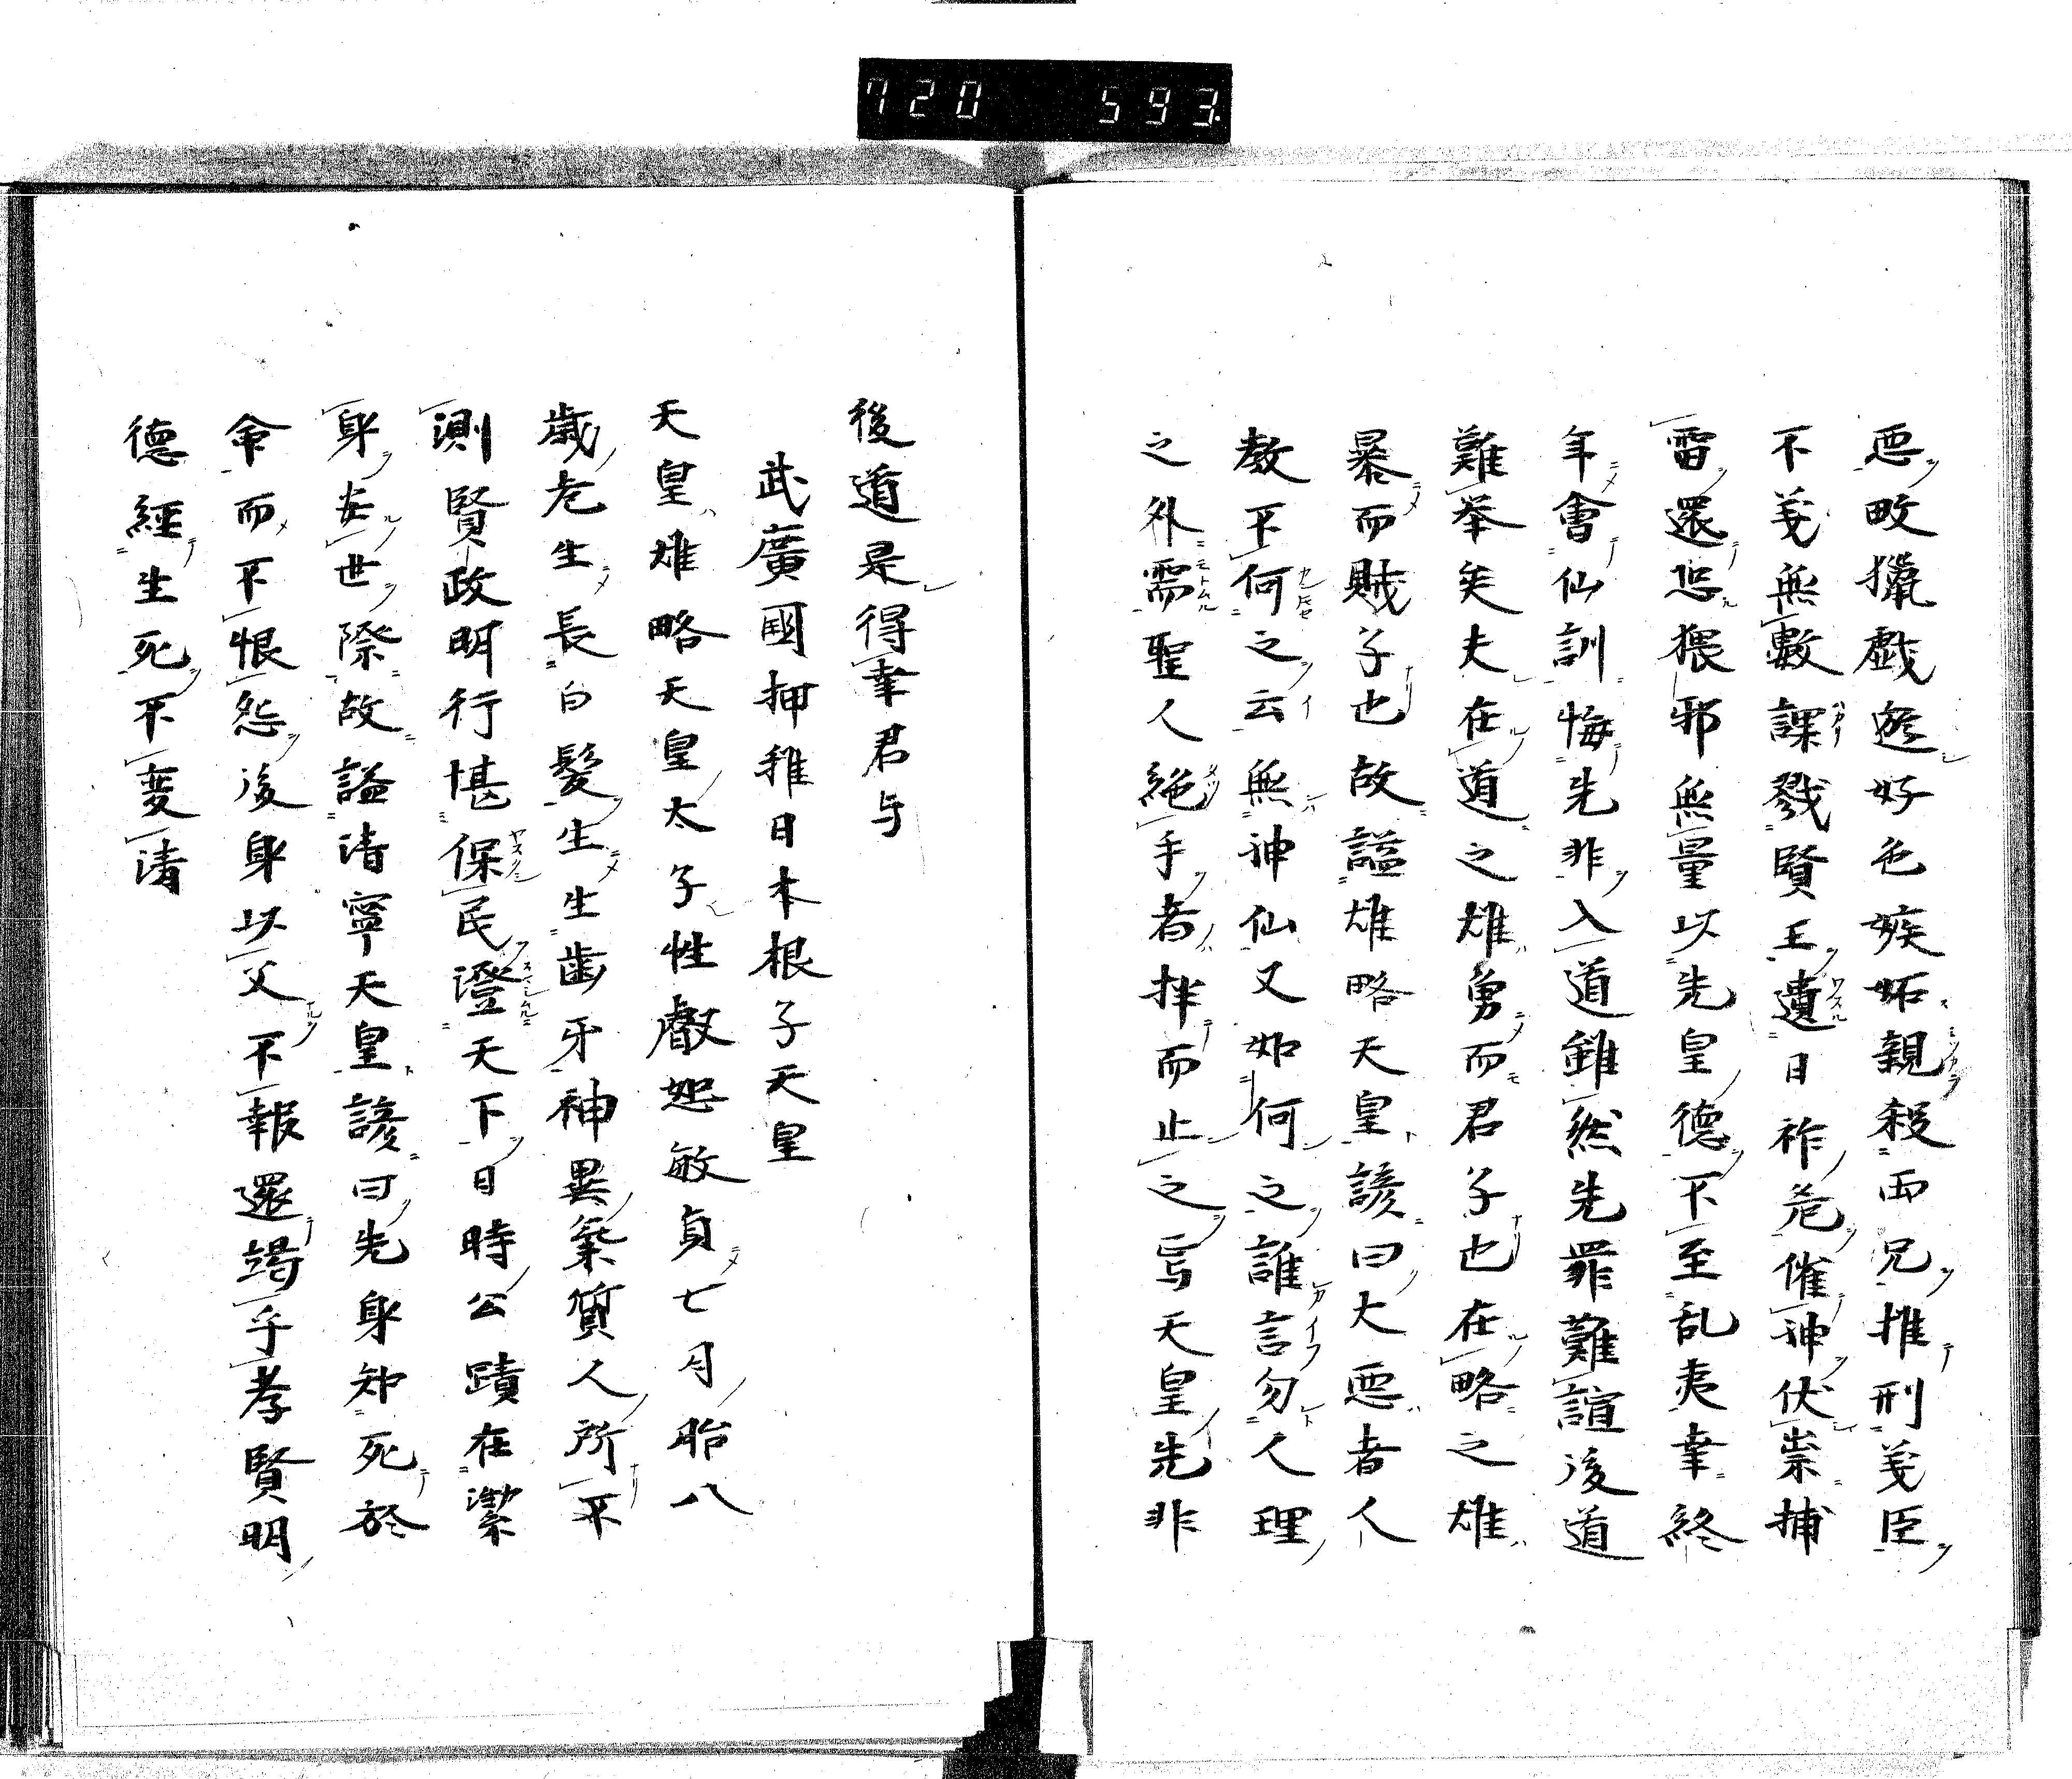 720 593
悪畋獵戯遊好色嫉妬親殺両兄推刑義臣
不義無數課戮賢王遺日祚危催神伏祟捕
雷還恐猥邪無量以先皇德不至乱夷幸終
年會仙訓悔先非入道雖然先罪難諠後道
難挙矣夫在道之雄勇而君子也在略之雄
暴而賊子也故謚雄略天皇諺曰大悪者人
教不何之云無神仙又如何之誰言勿人理
之外需聖人絶手者拌而止之写天皇先非
後道是得幸君与
武廣國押稚日本根子天皇
天皇雄略天皇太子性叡恕敏貞七月胎八
歳危生長白髪生生歯牙神異粢質人所不
測賢政明行甚保民澄天下日時公蹟在潔
身安世際故謚清寧天皇諺曰先身知死於
命而不恨怨後身以父不報還竭于孝賢明
德經生死不変清